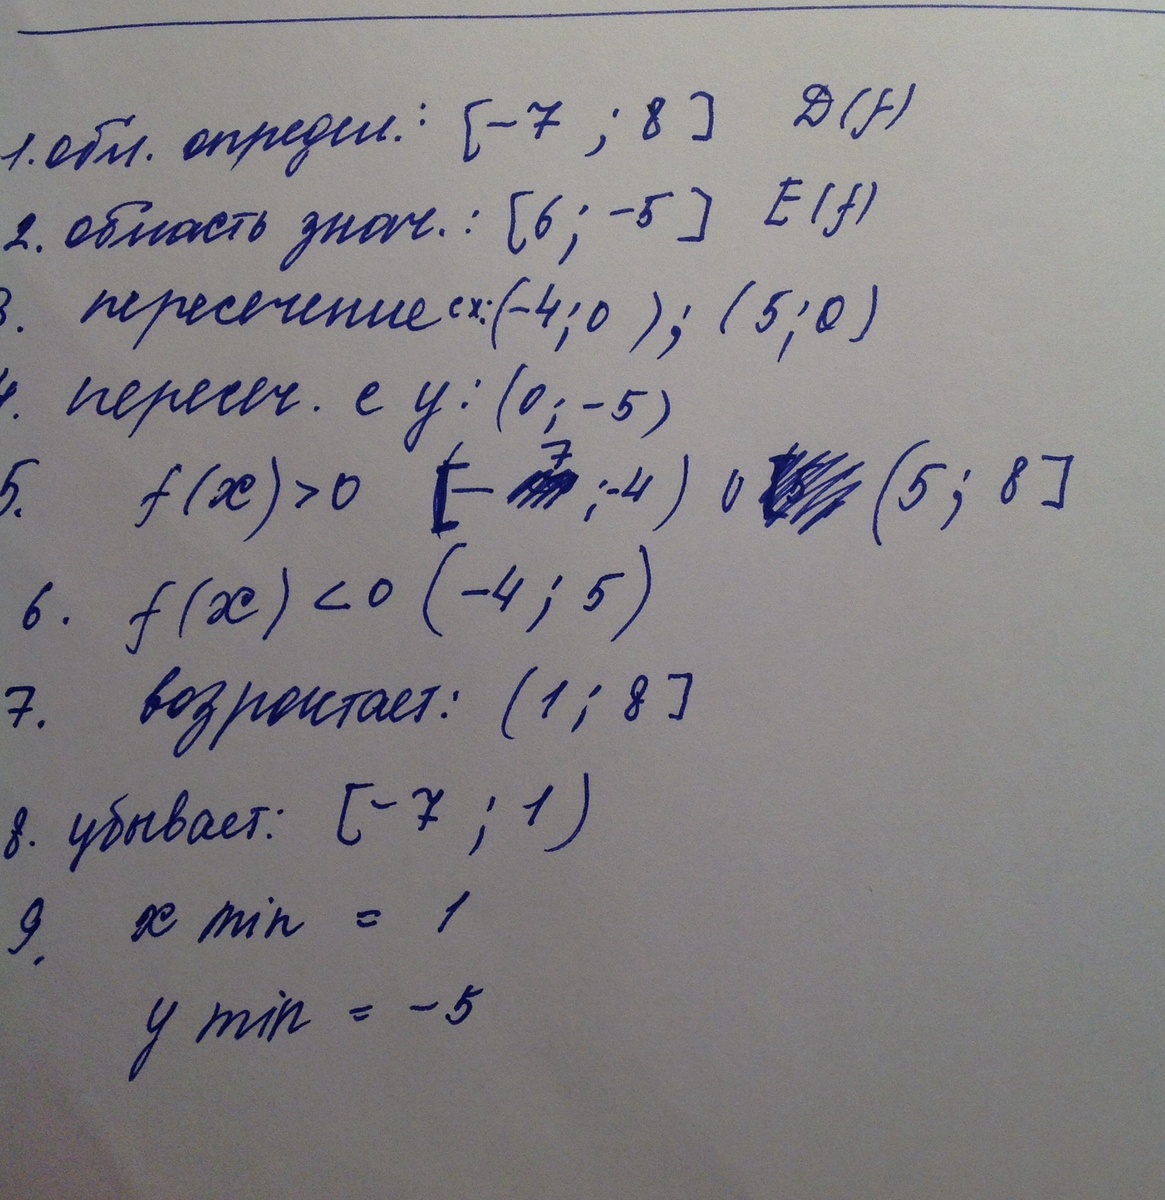 1. обл. определ.: [-7 ; 8] D(f)
2. область знач.: [6 ; -5] E(f)
3. пересечение с x: (-4;0 ); (5;0)
4. пересеч. с y: (0; -5)
5. f(x)>0 [-7 ;-4) U (5; 8]
6. f(x) <0 (-4; 5)
7. возрастает: (1; 8]
8. убывает: [-7 ; 1)
9. x min = 1
y min = -5